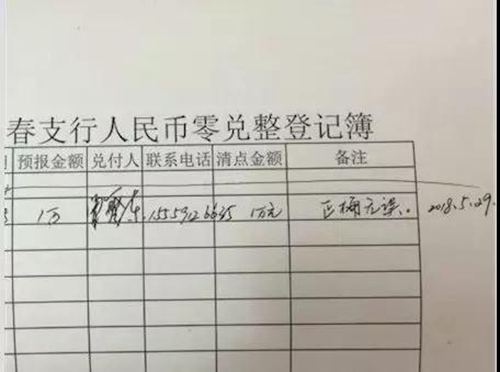 春支行人民币零兑整登记簿
预报金额 兑付人 联系电话 清点金额 备注
1万 1万元 正确无误. 2018.5.29.